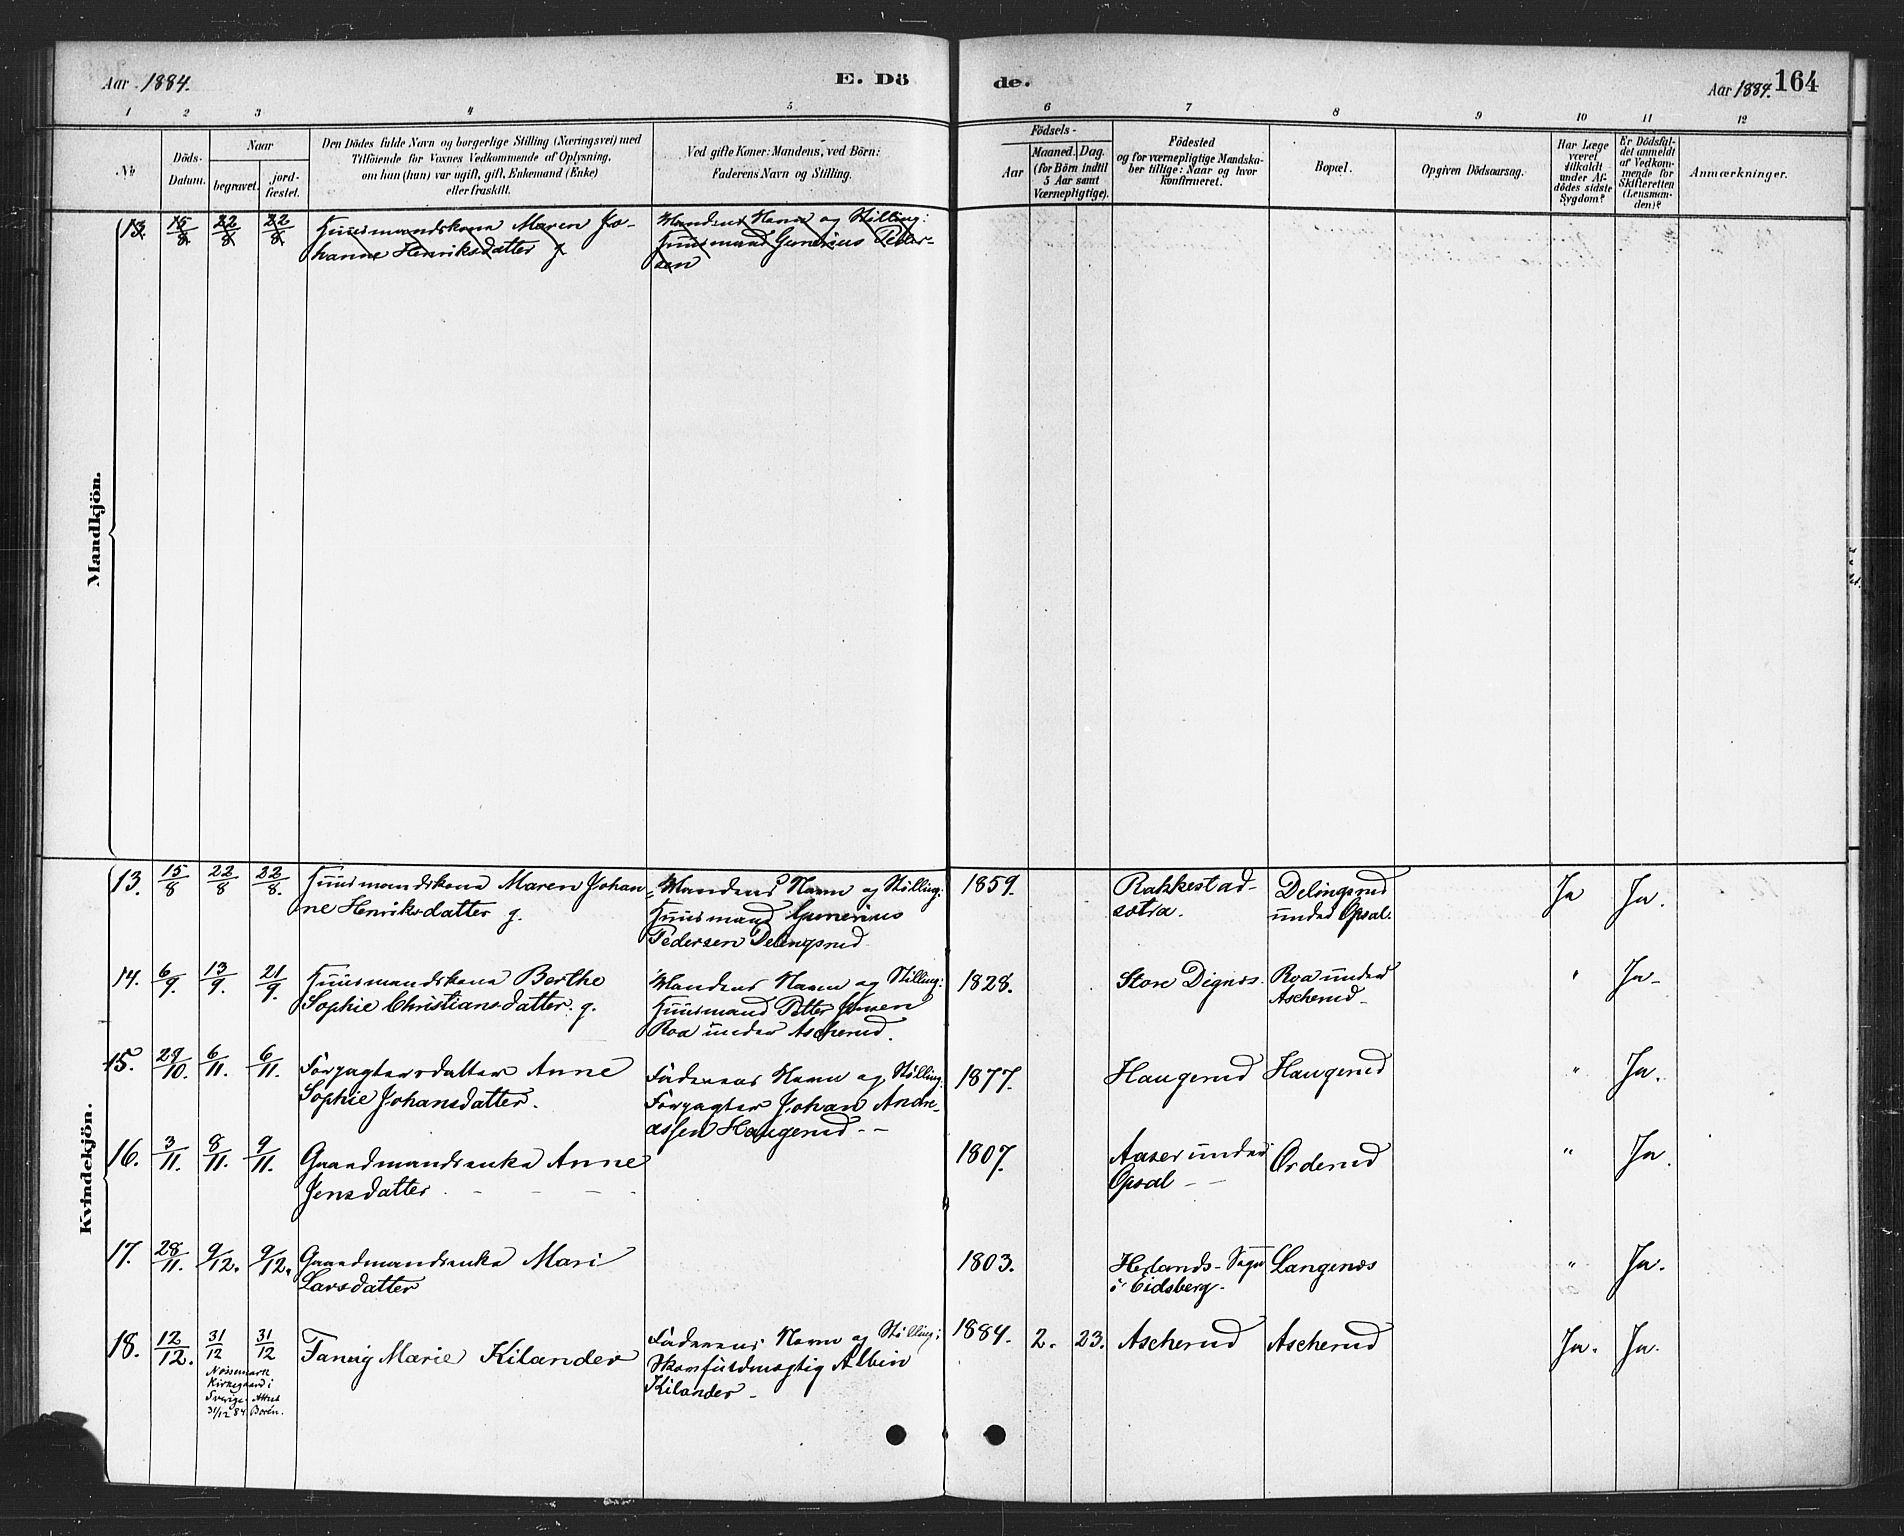 Aar 1884.
E. Dö
de.
Aar 1884. 164
1 2 3 4 5 6 7 8 9 10 11 12
No
Döds-
Datum.
Naar
begravet.
jord-
fæstet.
Den Dödes fulde Navn og borgerlige Stilling (Næringsvei) med
Tilföiende for Voxnes Vedkommende af Oplysning,
om han (hun) var ugift, gift, Enkemand (Enke)
eller fraskilt.
Ved gifte Koner: Mandens, ved Börn:
Faderens Navn og Stilling.
Födsels-
Aar
Maaned. Dag.
(for Börn indtil
5 Aar samt
Værnepligtige).
Födested
og for værnepligtige Mandska-
ber tillige: Naar og hvor
konfirmeret.
Bopæl.
Opgiven Dödsaarsag.
Har Læge
været
tilkaldt
under Af-
dödes sidste
Sygdom?
Er Dödsfal-
det anmeldt
af Vedkom-
mende for
Skifteretten
(Lensman-
den)?
Anmærkninger.
Mandkjön.
13. 15/8 22/8 22/8 Huusmandskona Maren Jo-
hanne Henriksdatter g
Mandens Navn og Stilling:
Huusmand Gunerius Peder-
sen
Kvindekjön.
13. 15/8 22/8 22/8. Huusmandskona Maren Johan
ne Henriksdatter g.
Mandens Navn og Stilling:
Huusmand Gunerius
Pedersen Delingsrud
1859. Rakkestad-
sætra.
Delingsrud
under Opsal.
Ja Ja.
14. 6/9. 13/9. 21/9. Huusmandskona Berthe
Sophie Christiansdatter. g.
Mandens Navn og Stilling:
Huusmand Petter Jensen
Roa under Ascherud.
1828. Store Dignes.
Roa under
Ascherud-
" Ja-
15. 29/10. 6/11. 6/11. Forpagtersdatter Anne
Sophie Johansdatter.
Faderens Navn og Stilling:
Forpagter Johan Andre-
assen Haugerud--
1877. Haugerud Haugerud " Ja.
16. 3/11. 8/11. 9/11. Gaardmandsenka Anne
Jensdatter
1807. Aaser under
Opsal--
Orderud " Ja.
17. 28/11. 9/12. 9/12. Gaardmandsenka Mari
Larsdatter
1803. Herlands-Sogn
i Eidsberg.
Langenæs " Ja.
18. 12/12. 31/12 31/12 Fanny Marie Kilander
Faderens Navn og Stilling:
Skovfuldmægtig Albin
Kilander-
1884. 2. 23. Ascherud Ascherud Ja. Ja.
Kirkegaard i
Sverige. Attest
31/12 84 Borén.